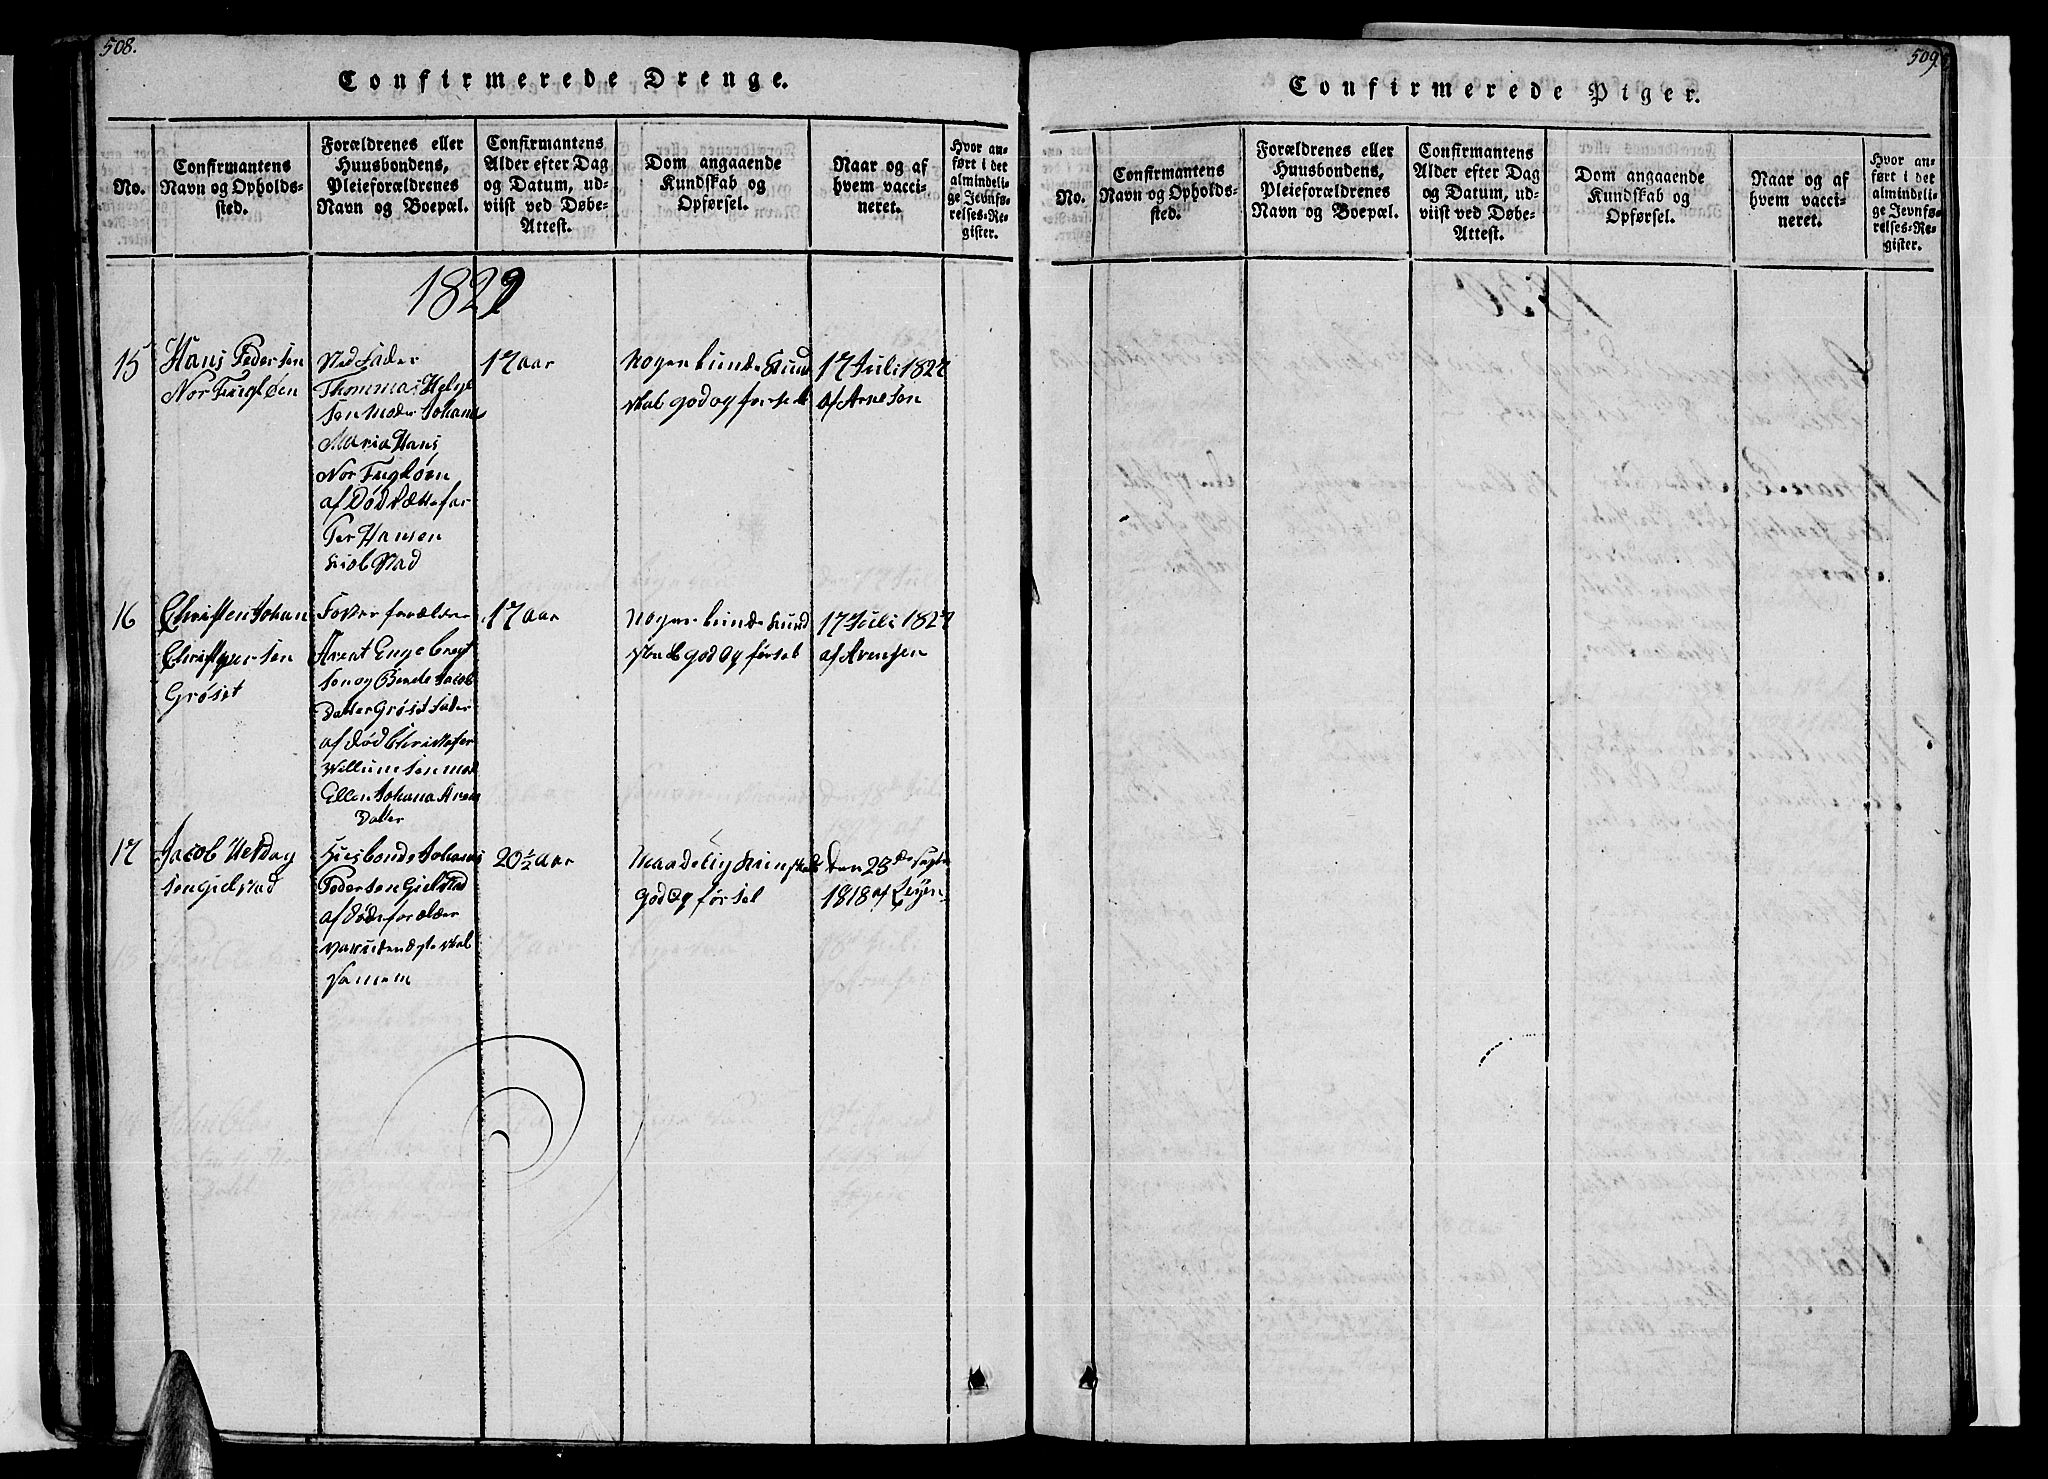 508.
Confirmerede Drenge.
No.
Confirmantens
Navn og Opholds-
sted.
Forældrenes eller
Huusbondens,
Pleieforældrenes
Navn og Boepæl.
Confirmantens
Alder efter Dag
og Datum, ud-
viist ved Døbe-
Attest.
Dom angaaende
Kundskab og
Opførsel.
Naar og af
hvem vacci-
neret.
Hvor an-
ført i det
almindeli-
ge Jevnfø-
relses-Re-
gister.
1829
15
Hans Peder sen
Nor Fugløen
Sted Fader
Thommas Helge
sen moder Johana
Maria Hans
Nor Fugløen
af Død rætte far
Per Hansen
17 aar
Nogenlunde Kund
skab god og førsel
17 Juli 1827
af Arnesen
16
Christen Johan
Christopher sen
Grøset
Foster forælder
Arent Engebregt
sen og Bende Jacob
Datter Grøset fader
af død Christofer
Willumsen mod
Ellen Johana Aren
Datter
17 aar
Nogenlunde Kund
skab god og førsel
17 Juli 1827
af Arensen
17
Jacob
sen Gielstad
Huusbonde Johanes
Pedersen Gielstad
af Døde forælder
20½ aar
Maadelig Kunskab
god og førsel
Den 28de Septr
1818 af
509
Confirmerede Piger.
No.
Confirmantens
Navn og Opholds-
sted.
Forældrenes eller
Huusbondens,
Pleieforældrenes
Navn og Boepæl.
Confirmantens
Alder efter Dag
og Datum, ud-
viist ved Døbe-
Attest.
Dom angaaende
Kundskab og
Opførsel.
Naar og af
hvem vacci-
neret.
Hvor an-
ført i det
almindeli-
ge Jevnfø-
relses-Re-
gister.